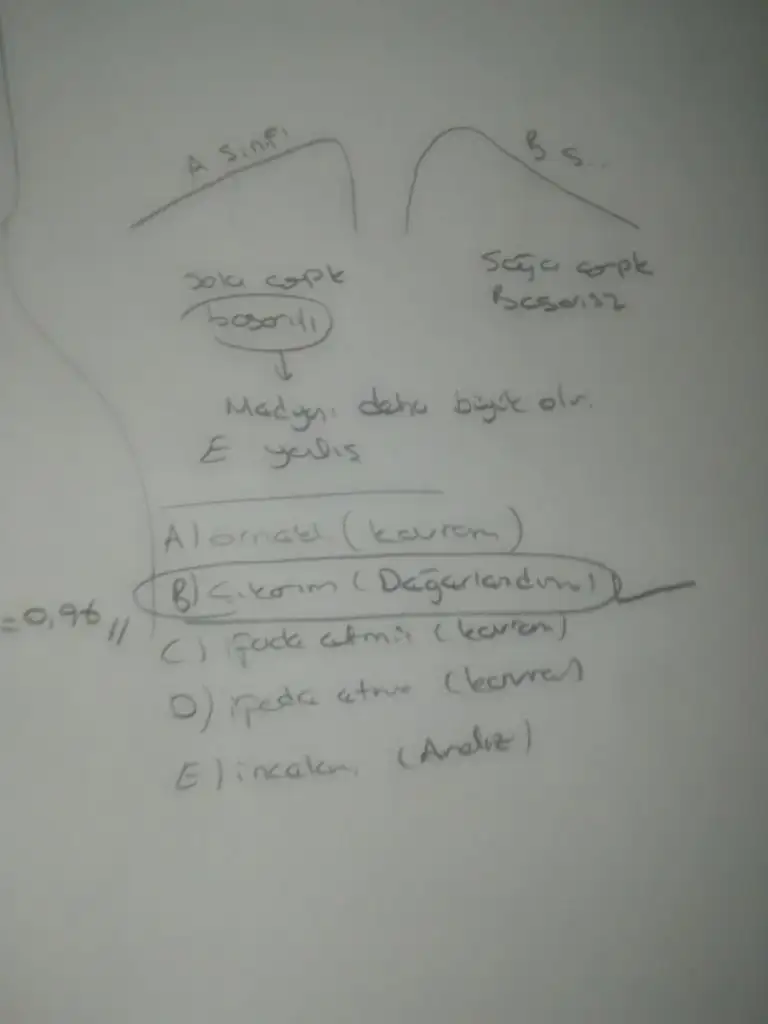 A sınfı
B s..
Sola çarpık
Sağa çarpık
başarılı
Başarısız
Medyanı daha büyük olr.
E yanlış
A) örnekl (kavram)
B) Çıkarım (Değerlendirm)
= 0,96 //
C) ifade etme (kavram)
D) ifade etme (kavra)
E) incelem (Analiz)